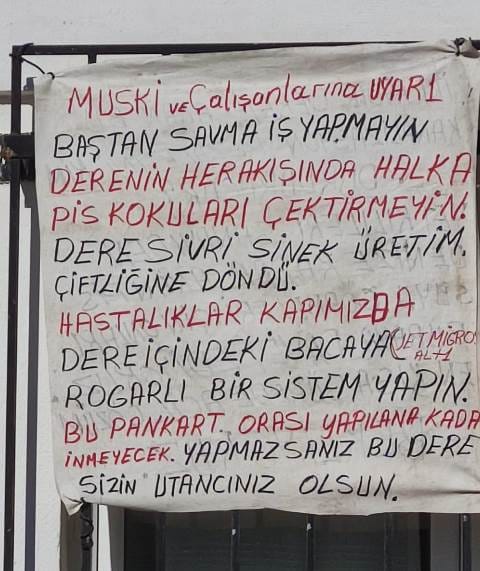 MUSKİ VE ÇalışanlarınA UYARI
BAŞTAN SAVMA İŞ YAPMAYIN
DERENİN HERAKIŞINDA HALKA
PİS KOKULARI ÇEKTİRMEYİN.
DERE SİVRİ SİNEK ÜRETİM.
ÇİFTLİĞİNE DÖNDÜ.
HASTALIKLAR KAPIMIZDA
DERE İÇİNDEKİ BACAYA (JET MİGROS
ALTI
ROGARLI BİR SİSTEM YAPIN.
BU PANKART. ORASI YAPILANA KADA
İNMEYECEK. YAPMAZSANIZ BU DERE
SİZİN UTANCINIZ OLSUN.